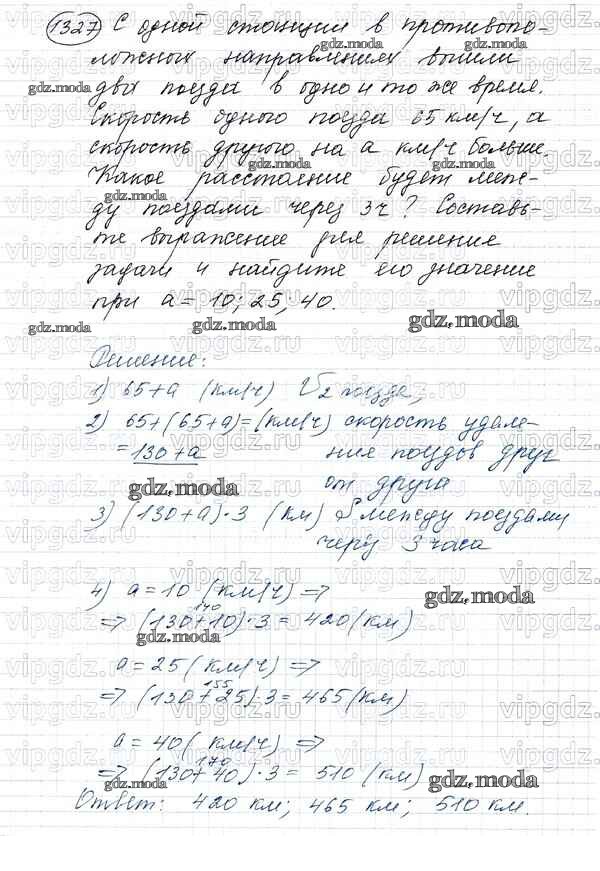 1327 С одной станции в противопо-
ложных направлениях вышли
два поезда в одно и то же время.
Скорость одного поезда 65 км/ч, а
скорость другого на а км/ч больше.
Какое расстояние будет меж-
ду поездами через 3ч? Составь-
те выражение для решения
задачи и найдите его значение
при а = 10; 25; 40.
gdz.moda
Решение:
1) 65+а (км/ч) V2 поезда,
2) 65+(65+а)=(км/ч) скорость удале-
= 130+а ния поездов друг
от друга
gdz.moda
3) (130+а)·3 (км) S между поездами
через 3 часа
4) а=10 (км/ч) =>
140
=> (130+10)·3 = 420 (км)
gdz.moda
а=25 (км/ч) =>
155
=> (130+25)·3 = 465 (км)
а=40 (км/ч) =>
170
=> (130+40)·3 = 510 (км)
gdz.moda
Ответ: 420 км; 465 км; 510 км.
vipgdz.ru